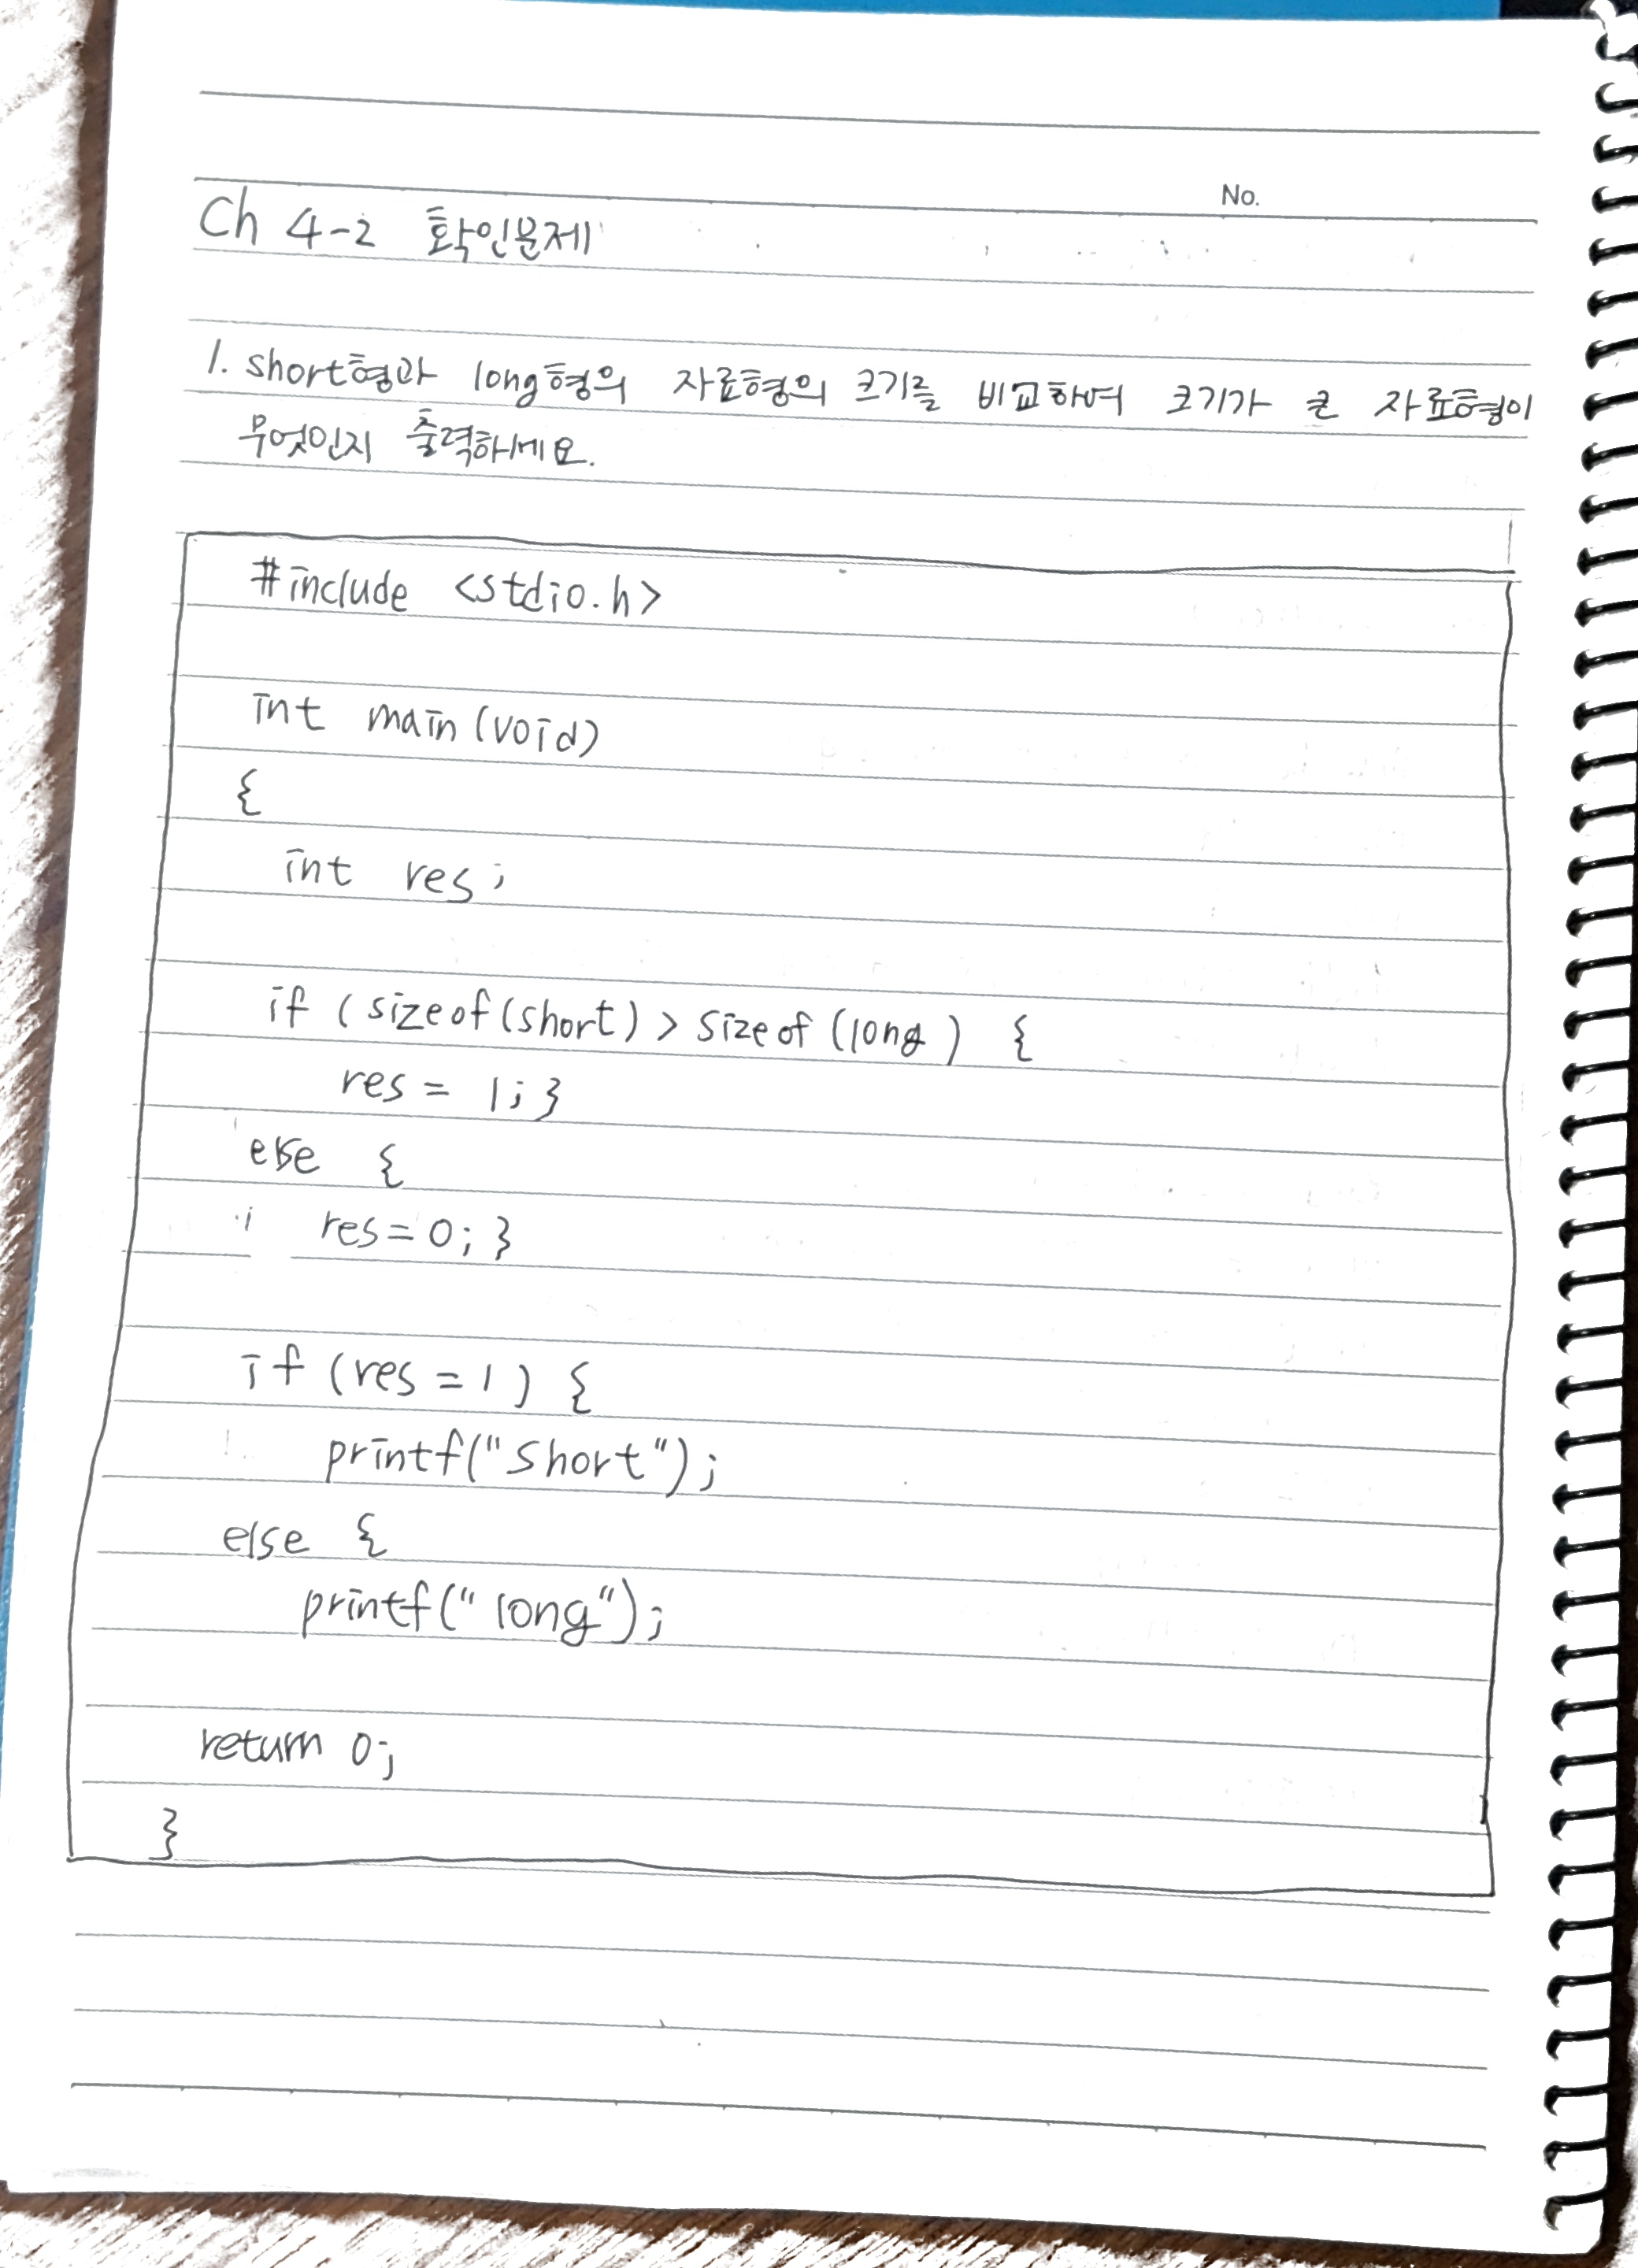 No.
Ch 4-2 확인문제
1. short형과 long형의 자료형의 크기를 비교하여 크기가 큰 자료형이
무엇인지 출력하세요.
#include <stdio.h>
int main(void)
{
int res;
if (sizeof(short) > sizeof(long) {
res = 1; }
else {
res = 0; }
if (res = 1) {
printf("short");
else {
printf("long");
return 0;
}